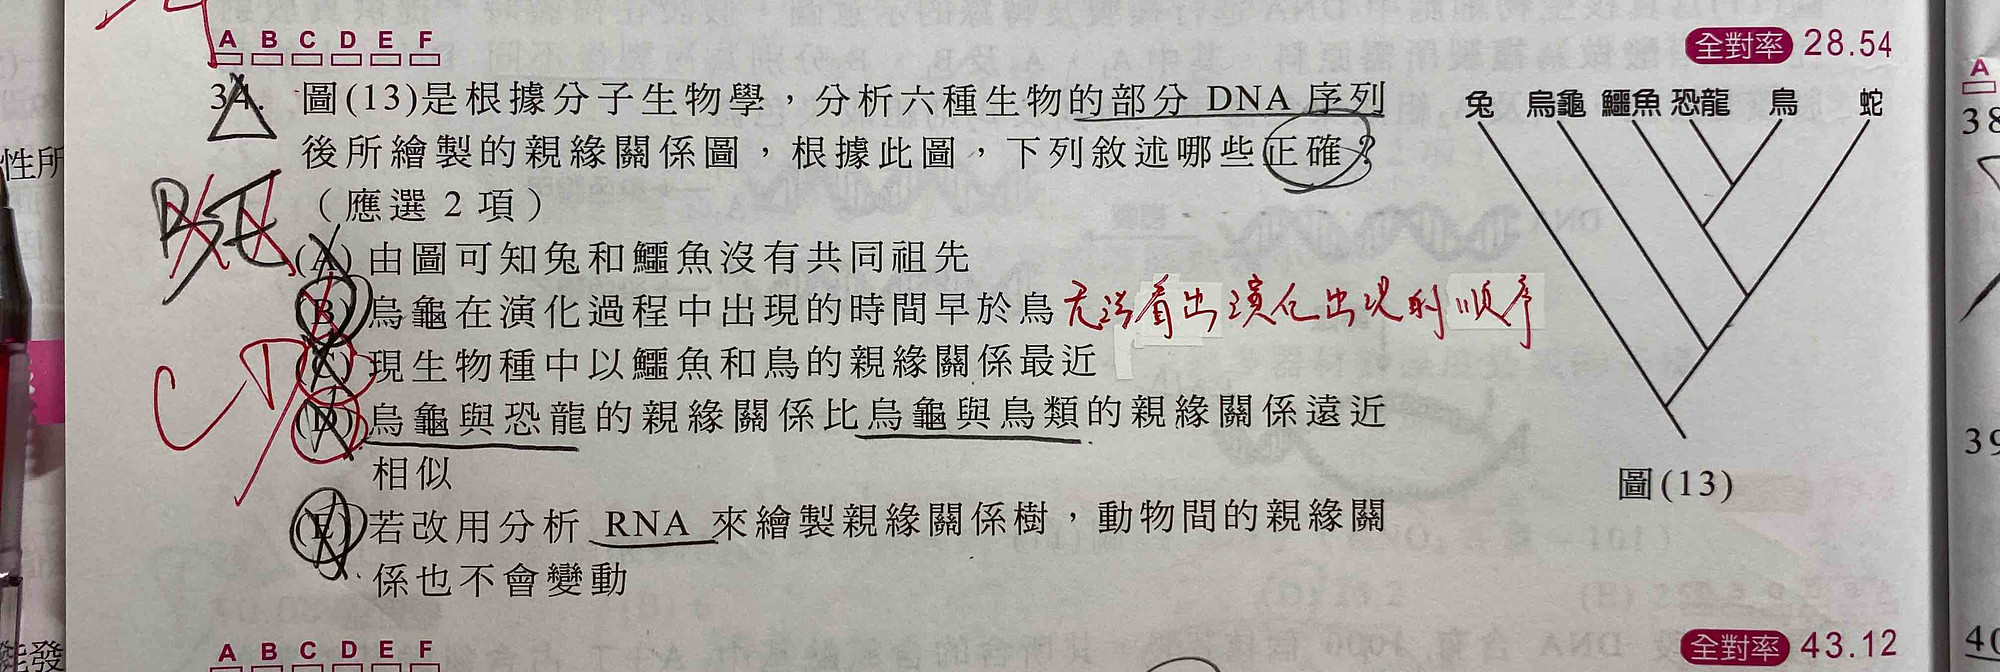 A B C D E F
全對率 28.54
34. 圖(13)是根據分子生物學，分析六種生物的部分 DNA 序列
後所繪製的親緣關係圖，根據此圖，下列敘述哪些正確？
（應選 2 項）
BE
(A) 由圖可知兔和鱷魚沒有共同祖先
(B) 烏龜在演化過程中出現的時間早於鳥 无法看出演化出現的順序
(C) 現生物種中以鱷魚和鳥的親緣關係最近
CD
(D) 烏龜與恐龍的親緣關係比烏龜與鳥類的親緣關係遠近
相似
(E) 若改用分析 RNA 來繪製親緣關係樹，動物間的親緣關
係也不會變動
兔 烏龜 鱷魚 恐龍 鳥 蛇
圖(13)
A B C D E F
全對率 43.12
性所
能發
A
38
39
40